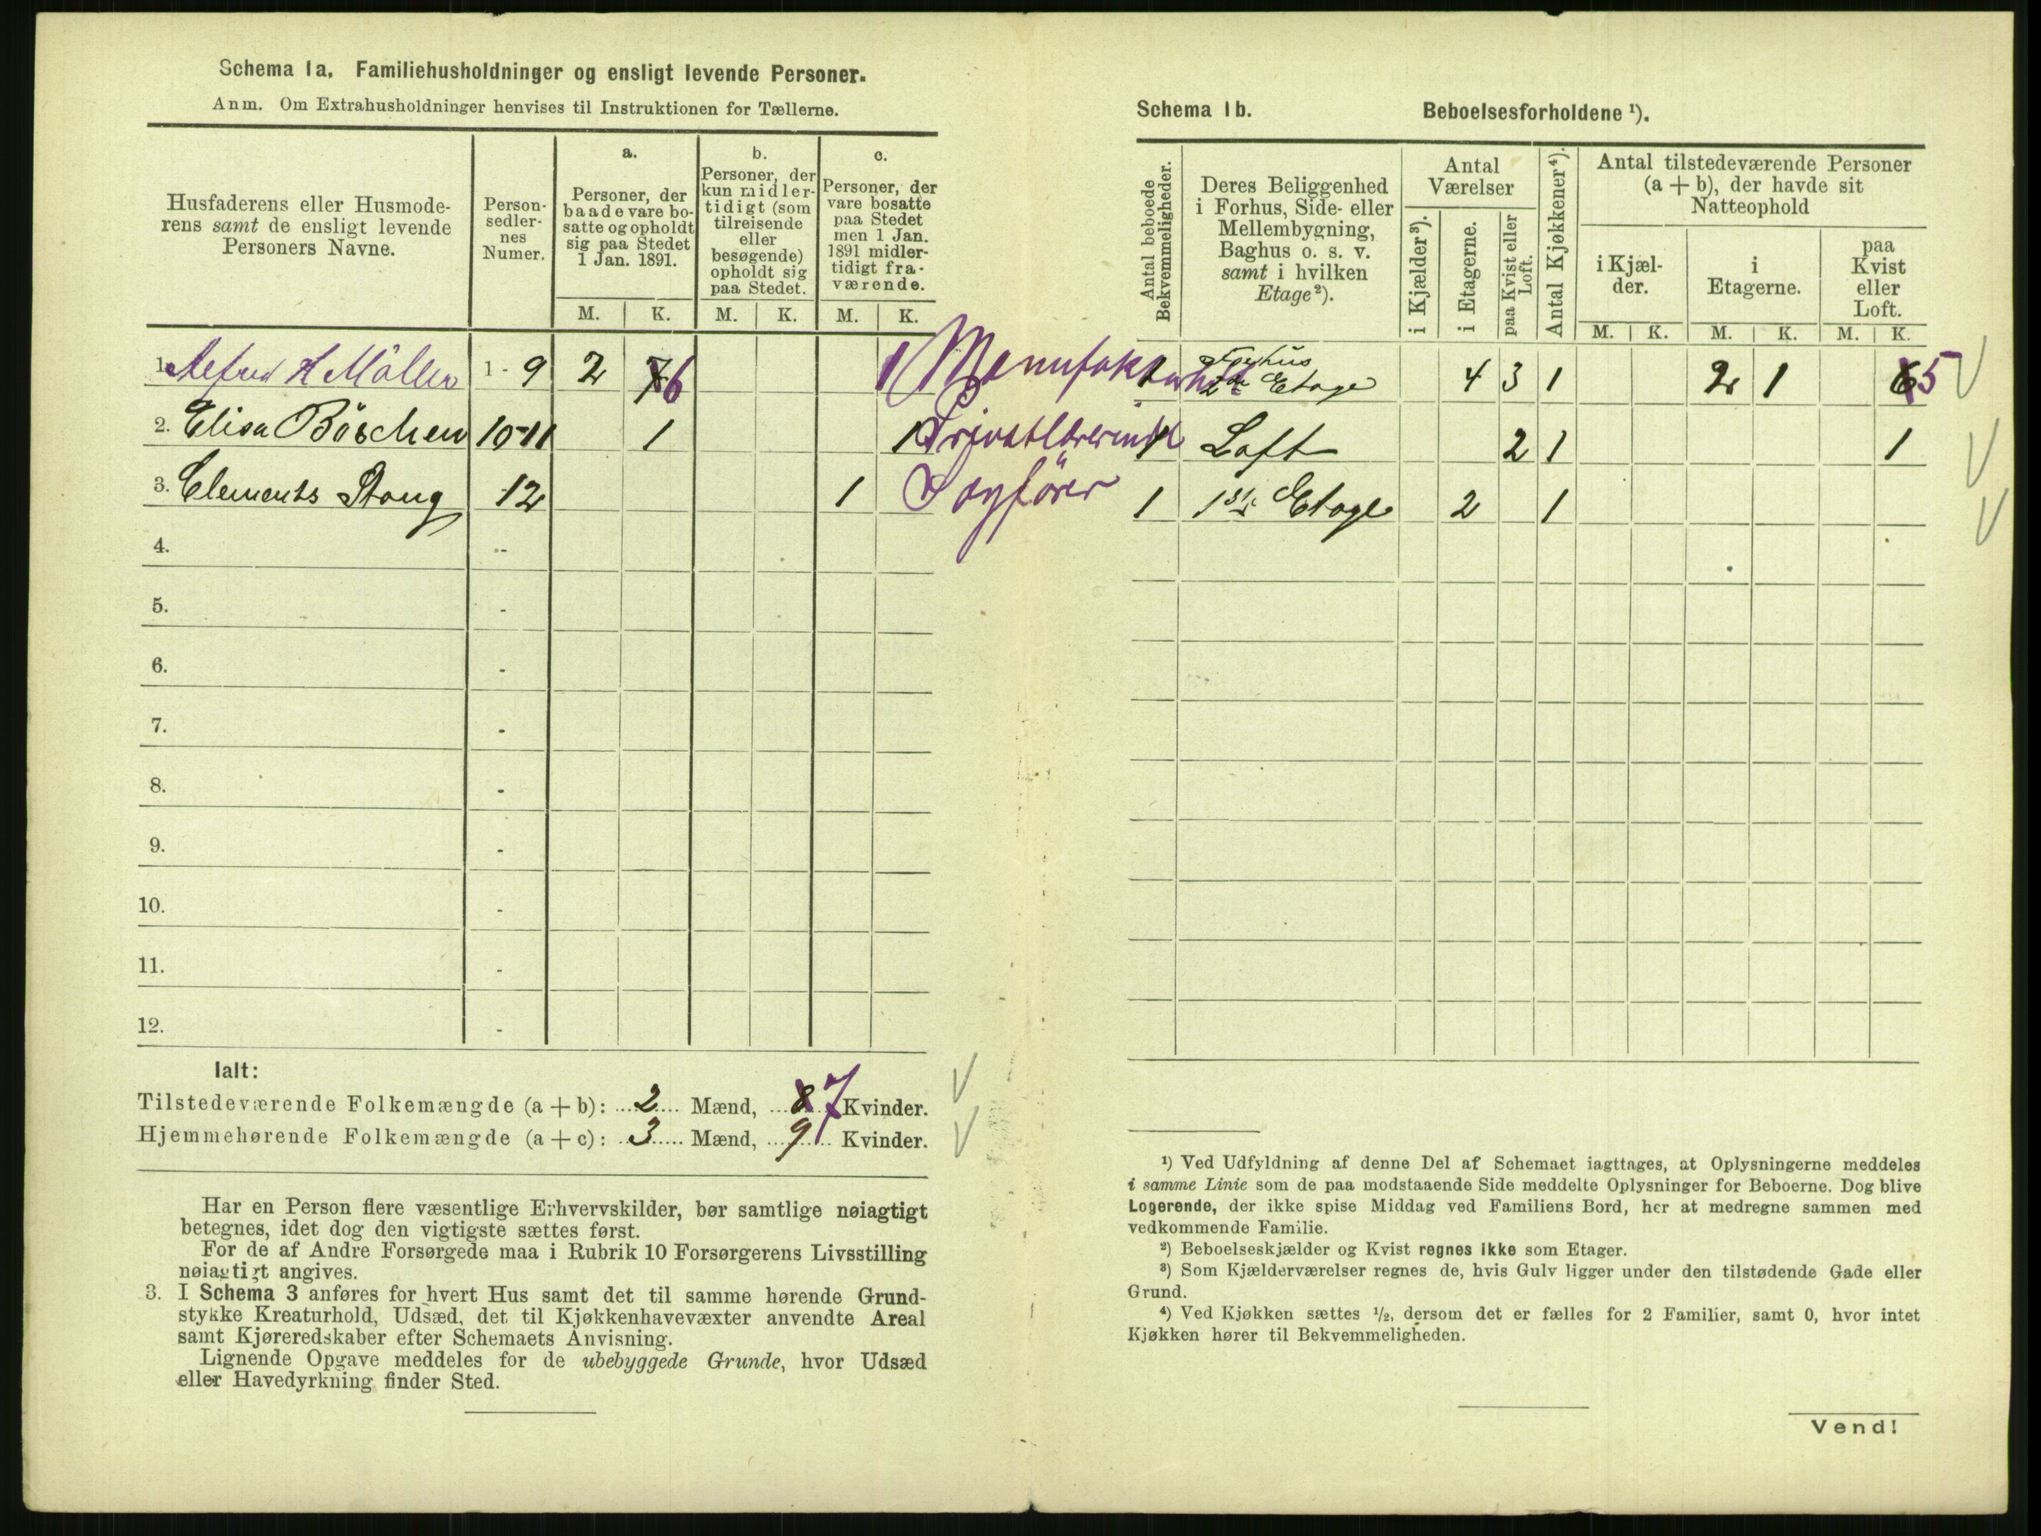 Schema 1a. Familiehusholdninger og ensligt levende Personer.
Anm. Om Extrahusholdninger henvises til Instruktionen for Tællerne.
Husfaderens eller Husmode-
rens samt de ensligt levende
Personers Navne.
Person-
sedler-
nes
Numer.
a.
Personer, der
baade vare bo-
satte og opholdt
sig paa Stedet
1 Jan. 1891.
b.
Personer, der
kun midler-
tidigt (som
tilreisende
eller
besøgende)
opholdt sig
paa Stedet.
c.
Personer, der
vare bosatte
paa Stedet
men 1 Jan.
1891 midler-
tidigt fra-
værende.
M. K. M. K. M. K.
1. H Möller 1 - 9 2 6 1
2. Elisa Böschen 10-11 1 1 Privatlærerinde
3. Clements Stang 12 1 Sagförer
4. -
5. -
6. -
7. -
8. -
9. -
10. -
11. -
12. -
Ialt:
Tilstedeværende Folkemængde (a + b): 2 Mænd, 8 7 Kvinder.
Hjemmehørende Folkemængde (a + c): 3 Mænd, 9 Kvinder.
Har en Person flere væsentlige Erhvervskilder, bør samtlige nøiagtigt
betegnes, idet dog den vigtigste sættes først.
For de af Andre Forsørgede maa i Rubrik 10 Forsørgerens Livsstilling
nøiagtigt angives.
3. I Schema 3 anføres for hvert Hus samt det til samme hørende Grund-
stykke Kreaturhold, Udsæd, det til Kjøkkenhavevæxter anvendte Areal
samt Kjøreredskaber efter Schemaets Anvisning.
Lignende Opgave meddeles for de ubebyggede Grunde, hvor Udsæd
eller Havedyrkning finder Sted.
Schema 1b. Beboelsesforholdene ¹).
Antal beboede
Bekvemmeligheder.
Deres Beliggenhed
i Forhus, Side- eller
Mellembygning,
Baghus o. s. v.
samt i hvilken
Etage ²).
Antal
Værelser
i Kjælder ³).
i Etagerne.
paa Kvist eller
Loft.
Antal Kjøkkener ⁴).
Antal tilstedeværende Personer
(a + b), der havde sit
Natteophold
i Kjæl-
der.
i
Etagerne.
paa
Kvist
eller
Loft.
M. K. M. K. M. K.
1 Forhus
2de Etage 4 3 1 2 1 6 5
1 Loft 2 1 1
1 1ste Etage 2 1
¹) Ved Udfyldning af denne Del af Schemaet iagttages, at Oplysningerne meddeles
i samme Linie som de paa modstaaende Side meddelte Oplysninger for Beboerne. Dog blive
Logerende, der ikke spise Middag ved Familiens Bord, her at medregne sammen med
vedkommende Familie.
²) Beboelseskjælder og Kvist regnes ikke som Etager.
³) Som Kjælderværelser regnes de, hvis Gulv ligger under den tilstødende Gade eller
Grund.
⁴) Ved Kjøkken sættes ½, dersom det er fælles for 2 Familier, samt 0, hvor intet
Kjøkken hører til Bekvemmeligheden.
Vend!